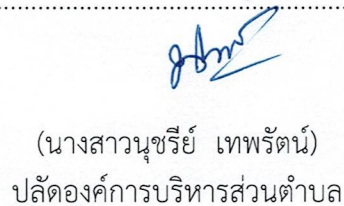 (นางสาวนุชรีย์ เทพรัตน์)
ปลัดองค์การบริหารส่วนตำบล